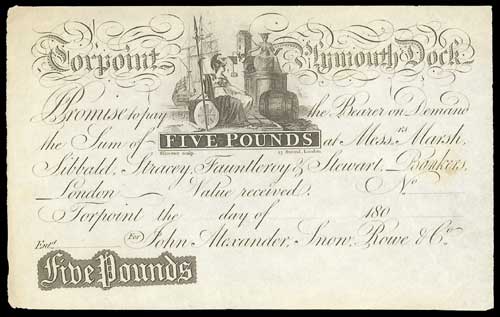 Torpoint Plymouth Dock
Promise to pay the Bearer on Demand
the Sum of FIVE POUNDS at Mess.rs Marsh,
Sibbald, Stracey, Fauntleroy & Stewart, Bankers,
London Value received. No
Torpoint the day of 180
Ent.d For John Alexander, Snow, Rowe & Co.
Five Pounds